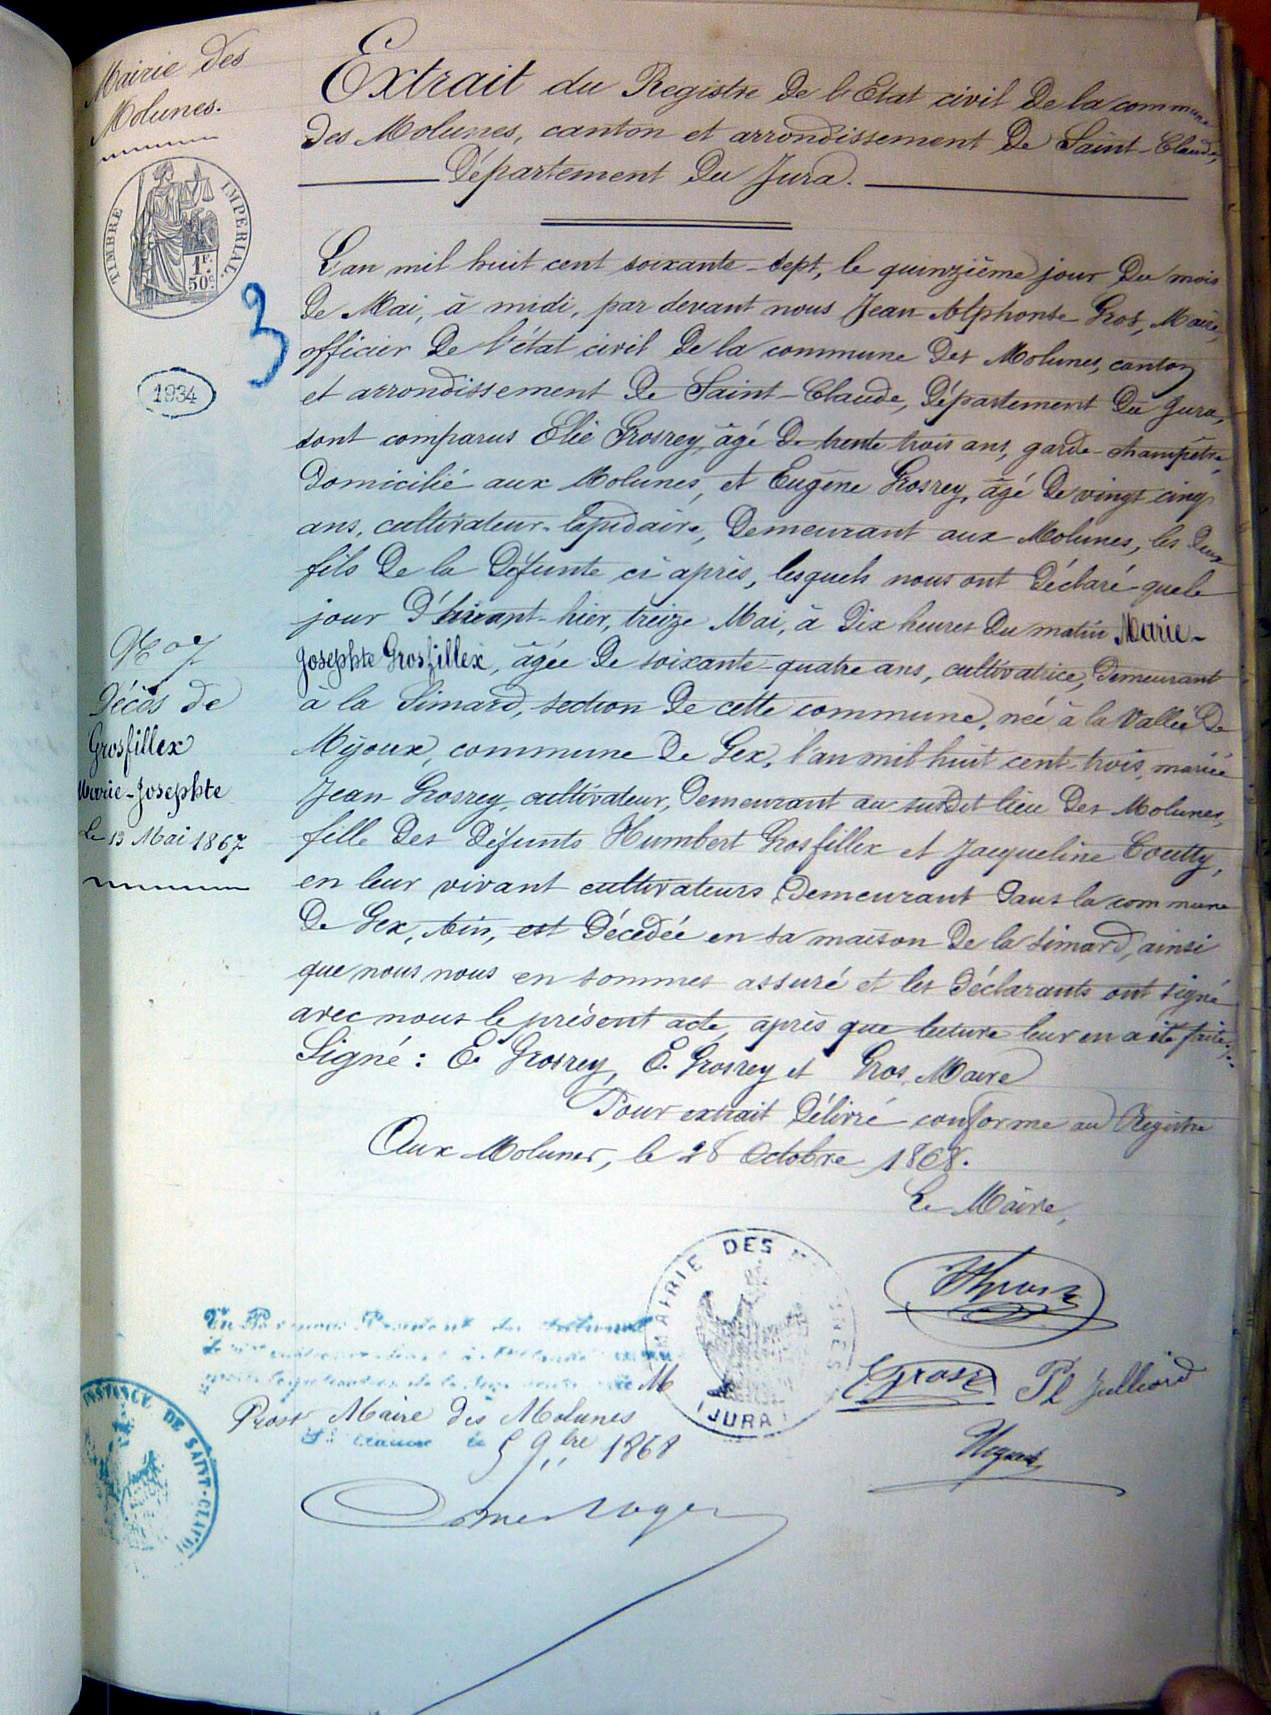 Mairie des
Molunes.
TIMBRE IMPERIAL.
1F.
50c.
3
1934
Extrait du Registre de l'Etat civil de la commune
des Molunes, canton et arrondissement de Saint-Claude,
Département du Jura.
L'an mil huit cent soixante-sept, le quinzième jour du mois
de Mai, à midi, par devant nous Jean Alphonse Gros, Maire,
officier de l'état civil de la commune des Molunes, canton
et arrondissement de Saint-Claude, Département du Jura,
sont comparus Elie Grosrey, âgé de trente trois ans, garde-champêtre,
domicilié aux Molunes, et Eugène Grosrey, âgé de vingt cinq
ans, cultivateur-lapidaire, demeurant aux Molunes, les deux
fils de la défunte ci après, lesquels nous ont déclaré que le
jour d'avant-hier, treize Mai, à dix heures du matin Marie-
Josephte Grosfillex, âgée de soixante-quatre ans, cultivatrice, demeurant
à la Simard, section de cette commune, née à la Vallée de
Mijoux, commune de Gex, l'an mil huit cent trois, mariée
Jean Grosrey, cultivateur, demeurant au susdit lieu des Molunes,
fille des défunts Humbert Grosfillex et Jacqueline Coutty,
en leur vivant cultivateurs demeurant dans la commune
de Gex, Ain, est décédée en sa maison de la Simard, ainsi
que nous nous en sommes assuré et les déclarants ont signé
avec nous le présent acte, après que lecture leur en a été faite.
Signé: E. Grosrey, E. Grosrey et Gros, Maire
Pour extrait délivré conforme au Registre
Aux Molunes, le 28 Octobre 1868.
Le Maire,
No 7
Décès de
Grosfillex
Marie-Josephte
Le 13 Mai 1867
MAIRIE DES
(JURA)
M
Prost Maire des Molunes
5 9bre 1868
Pl Julliard
INSTANCE DE SAINT-CLAUDE